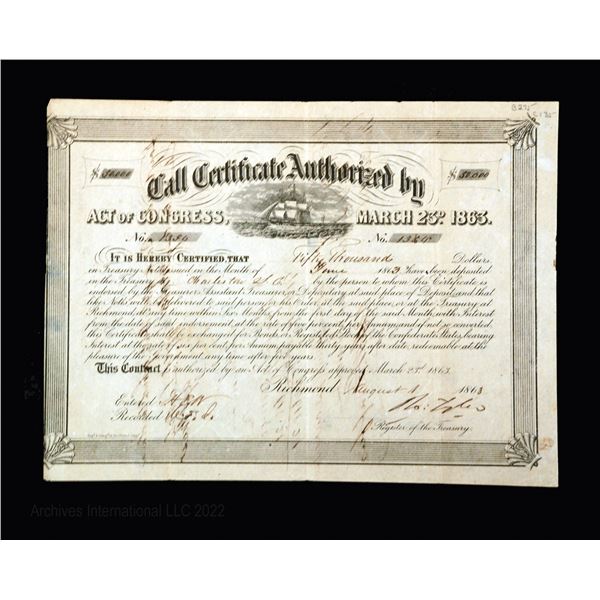 B275
$ 50,000 $ 50,000
Call Certificate Authorized by
ACT OF CONGRESS, MARCH 23D. 1863.
No. No.
IT IS HEREBY CERTIFIED, THAT Fifty thousand Dollars,
in Treasury Notes issued in the Month of June 1863 have been deposited
in the Treasury by Charleston S.C. by the person to whom this Certificate is
endorsed by the Treasurer Assistant Treasurer or Depositary at said place of Deposit, and that
like Notes will be delivered to said person or his Order, at the said place, or at the Treasury at
Richmond, at any time within Six Months from the first day of the said Month, with Interest
from the date of said endorsement, at the rate of five percent, per Annum, and if not so converted,
this Certificate shall be exchanged for Bonds or Registered Stock of the Confederate States, bearing
Interest at the rate of six per cent, per Annum, payable thirty years after date, redeemable at the
pleasure of the Government any time after five years.
THIS CONTRACT is authorized by an Act of Congress approved March 23d. 1863.
Richmond August 1 1863
Entered
Recorded Ro: Tyler
Register of the Treasury.
Archives International LLC 2022